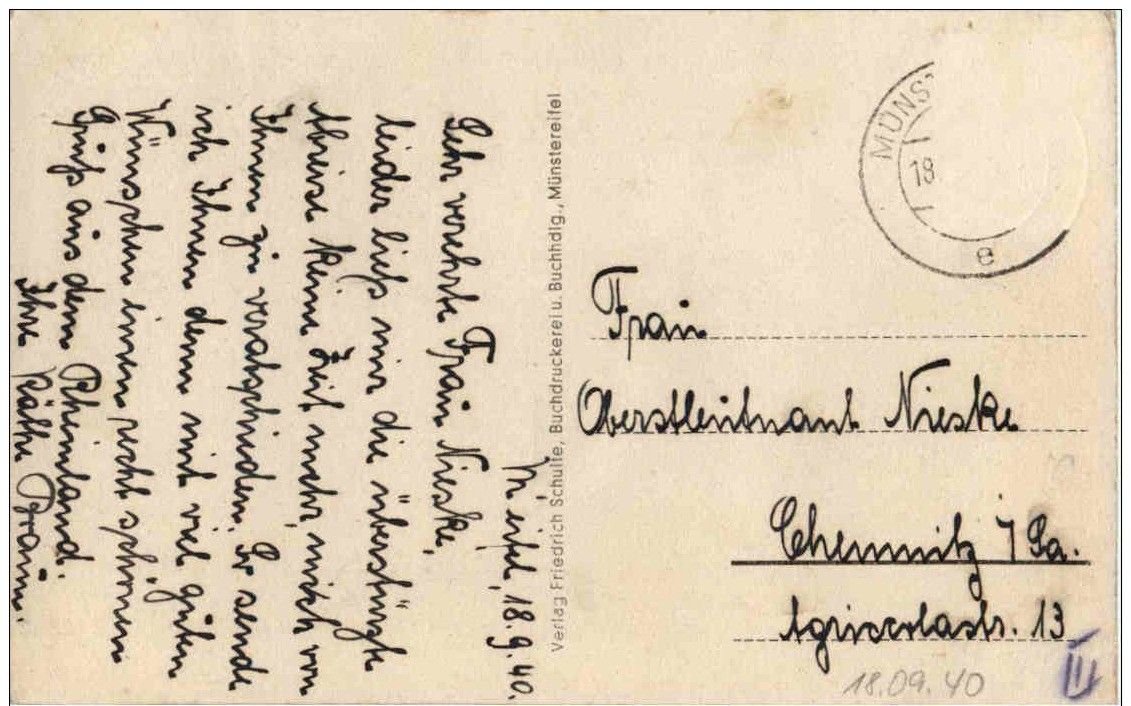 M'eifel, 18.9.40.
Sehr verehrte Frau Nieske,
leider ließ mir die überstürzte
Abreise keine Zeit mehr, mich von
Ihnen zu verabschieden. So sende
ich Ihnen denn mit viel guten
Wünschen einen recht schönen
Gruß aus dem Rheinland.
Ihre Käthe Braun.
Verlag Friedrich Schulte, Buchdruckerei u. Buchhdlg., Münstereifel
MÜNS
18.
e
Frau
Oberstleutnant Nieske
Chemnitz / Sa.
Agricolastr. 13
III
18.09.40